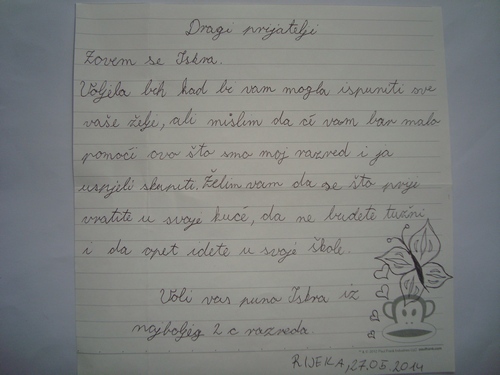 Dragi prijatelji
Zovem se Iskra.
Voljela bih kad bi vam mogla ispuniti sve
vaše želji, ali mislim da ći vam bar malo
pomoći ovo što smo moj razred i ja
uspjeli skupiti. Želim vam da se što prije
vratite u svoje kuće, da ne budete tužni,
i da opet idete u svoje škole.
Voli vas puno Iskra iz
najboljeg 2 c razreda.
RIJEKA, 27.05.2014